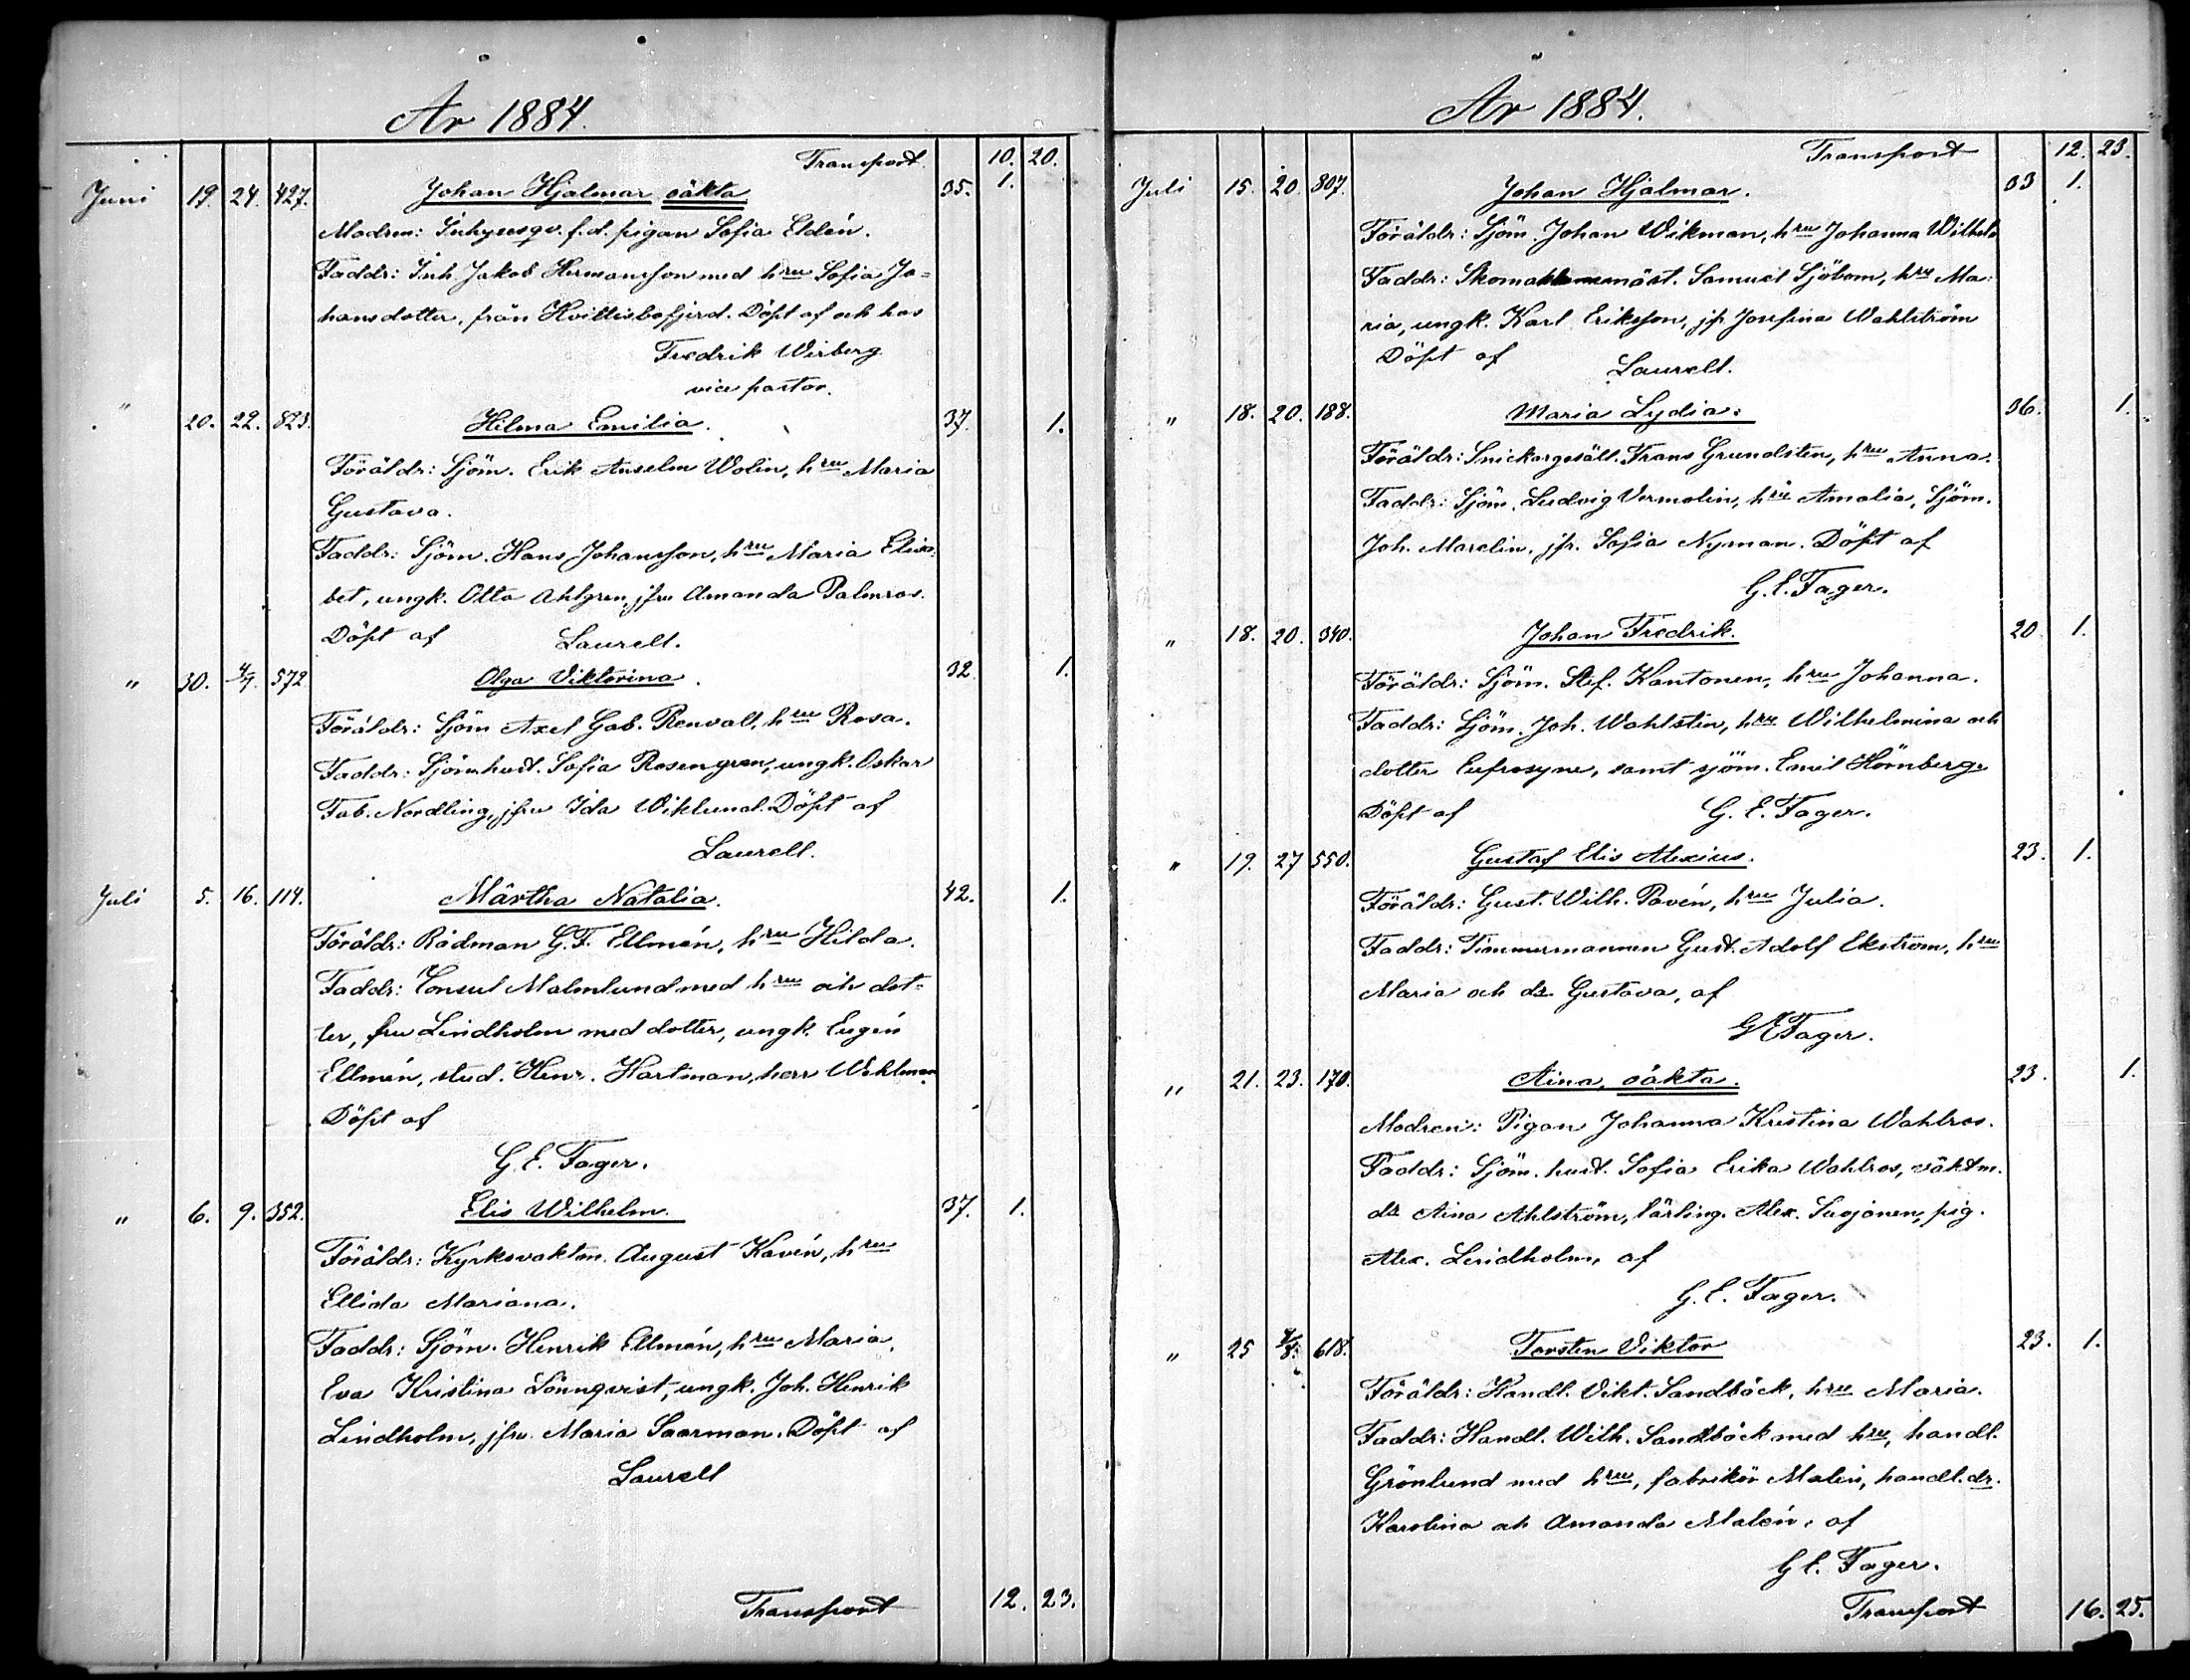 År 1884.
Transport 10. 20.
Juni 19. 24. 427. Johan Hjalmar oäkta 35. 1.
Modren: Inhysesqv. f.d. pigan Sofia Eldén.
Faddr: Inh. Jakob Hermansson med hru Sofia Jo=
hansdotter, från Hvittisbofjerd. Döpt af och hos
Fredrik Wirberg
vice pastor.
" 20. 22. 823. Hilma Emilia. 37. 1.
Föräldr: Sjöm. Erik Anselm Wolin, hru Maria
Gustava.
Faddr: Sjöm. Hans Johansson, hru Maria Elisa
bet, ungk. Otto Ahlgren, jfru Amanda Palmros.
Döpt af Laurell.
" 30. 4/7. 572 Olga Viktorina. 32 1.
Föräldr: Sjöm Axel Gab. Renvall, hru Rosa.
Faddr: Sjöm.hust. Sofia Rosengren, ungk. Oskar
Fab. Nordling, jfru Ida Wiklund. Döpt af
Laurell.
Juli 5. 16. 114. Märtha Natalia. 42. 1.
Föräldr: Rådman G.F. Ellmén, hru Hilda.
Faddr: Consul Malmlund med hru och dot=
ter, fru Lindholm med dotter, ungk. Eugén
Ellmén, stud. Henr. Hartman, herr Wahlman
Döpt af
G.E. Fager.
" 6. 9. 352. Elis Wilhelm. 37. 1.
Föräldr: Kyrkovaktm. August Kavén, hru
Ellida Mariana.
Faddr: Sjöm. Henrik Ellmén, hru Maria,
Eva Kristina Lönnqvist, ungk. Joh. Henrik
Lindholm, jfru. Maria Saarman. Döpt af
Laurell
Transport 12. 23.
År 1884.
Transport 12. 23.
Juli 15. 20. 807. Johan Hjalmar. 33 1.
Föräldr: Sjöm. Johan Wikman, hru Johanna Wilhela
Faddr: Skomakaremäst. Samuel Sjöbom, hru Ma=
ria, ungk. Karl Eriksson, jfr Josefina Wahlström
Döpt af Laurell.
" 18. 20. 188. Maria Lydia. 36. 1.
Föräldr: Snickargesäll. Frans Grundsten, hru Anna.
Faddr: Sjöm. Ludvig Vermolin, hru Amalia, Sjöm.
Joh. Marelin, jfr. Sofia Nyman. Döpt af
G.E. Fager.
" 18. 20. 340. Johan Fredrik. 20 1.
Föräldr: Sjöm. Stef. Kantonen, hru Johanna.
Faddr: Sjöm. Joh. Wahlstén, hru Wilhelmina och
dotter Eufrosyne, samt sjöm. Emil Hörnberg.
Döpt af G. E. Fager.
" 19. 27 550. Gustaf Elis Alexius. 23. 1.
Föräldr: Gust. Wilh. Pavén, hru Julia.
Faddr: Timmermannen Gust. Adolf Ekström, hru
Maria och dr Gustava, af
GEFager.
" 21. 23. 170. Aina, oäkta. 23. 1.
Modren: Pigan Johanna Kristina Wahlros.
Faddr: Sjöm. hust. Sofia Erika Wahlros, väktm.
dr Aina Ahlström, lärling. Alex. Suojanen, pig.
Alex. Lindholm, af
G. E. Fager.
" 25 618. Torsten Viktor 23. 1.
Föräldr: Handl. Vikt. Sandbäck, hru Maria.
Faddr: Handl. Wilh. Sandbäck med hru, handl.
Grönlund med hru, fabrikör Malin, handl. dr.
Karolina och Amanda Malén, af
G E. Fager.
Transport 16. 25.